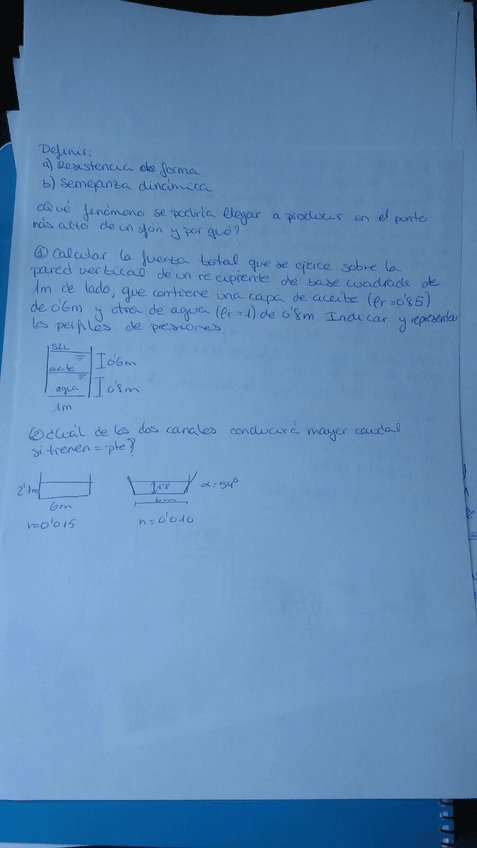 Definir:
a) Resistencia de forma
b) Semejanza dinámica
¿Qué fenómeno se podría llegar a producir en el punto
más alto de un sifón y por qué?
① Calcular la fuerza total que se ejerce sobre la
pared vertical de un recipiente de base cuadrada de
1m de lado, que contiene una capa de aceite (ρr=0'85)
de 0'6m y otra de agua (ρr=1) de 0'8m. Indicar y representar
los perfiles de presiones.
SLL
aceite
0'6m
agua
0'8m
1m
② ¿Cuál de los dos canales conducirá mayor caudal
si tienen = pte?
6m
n=0'015
1'8
α=54°
6m
n=0'010